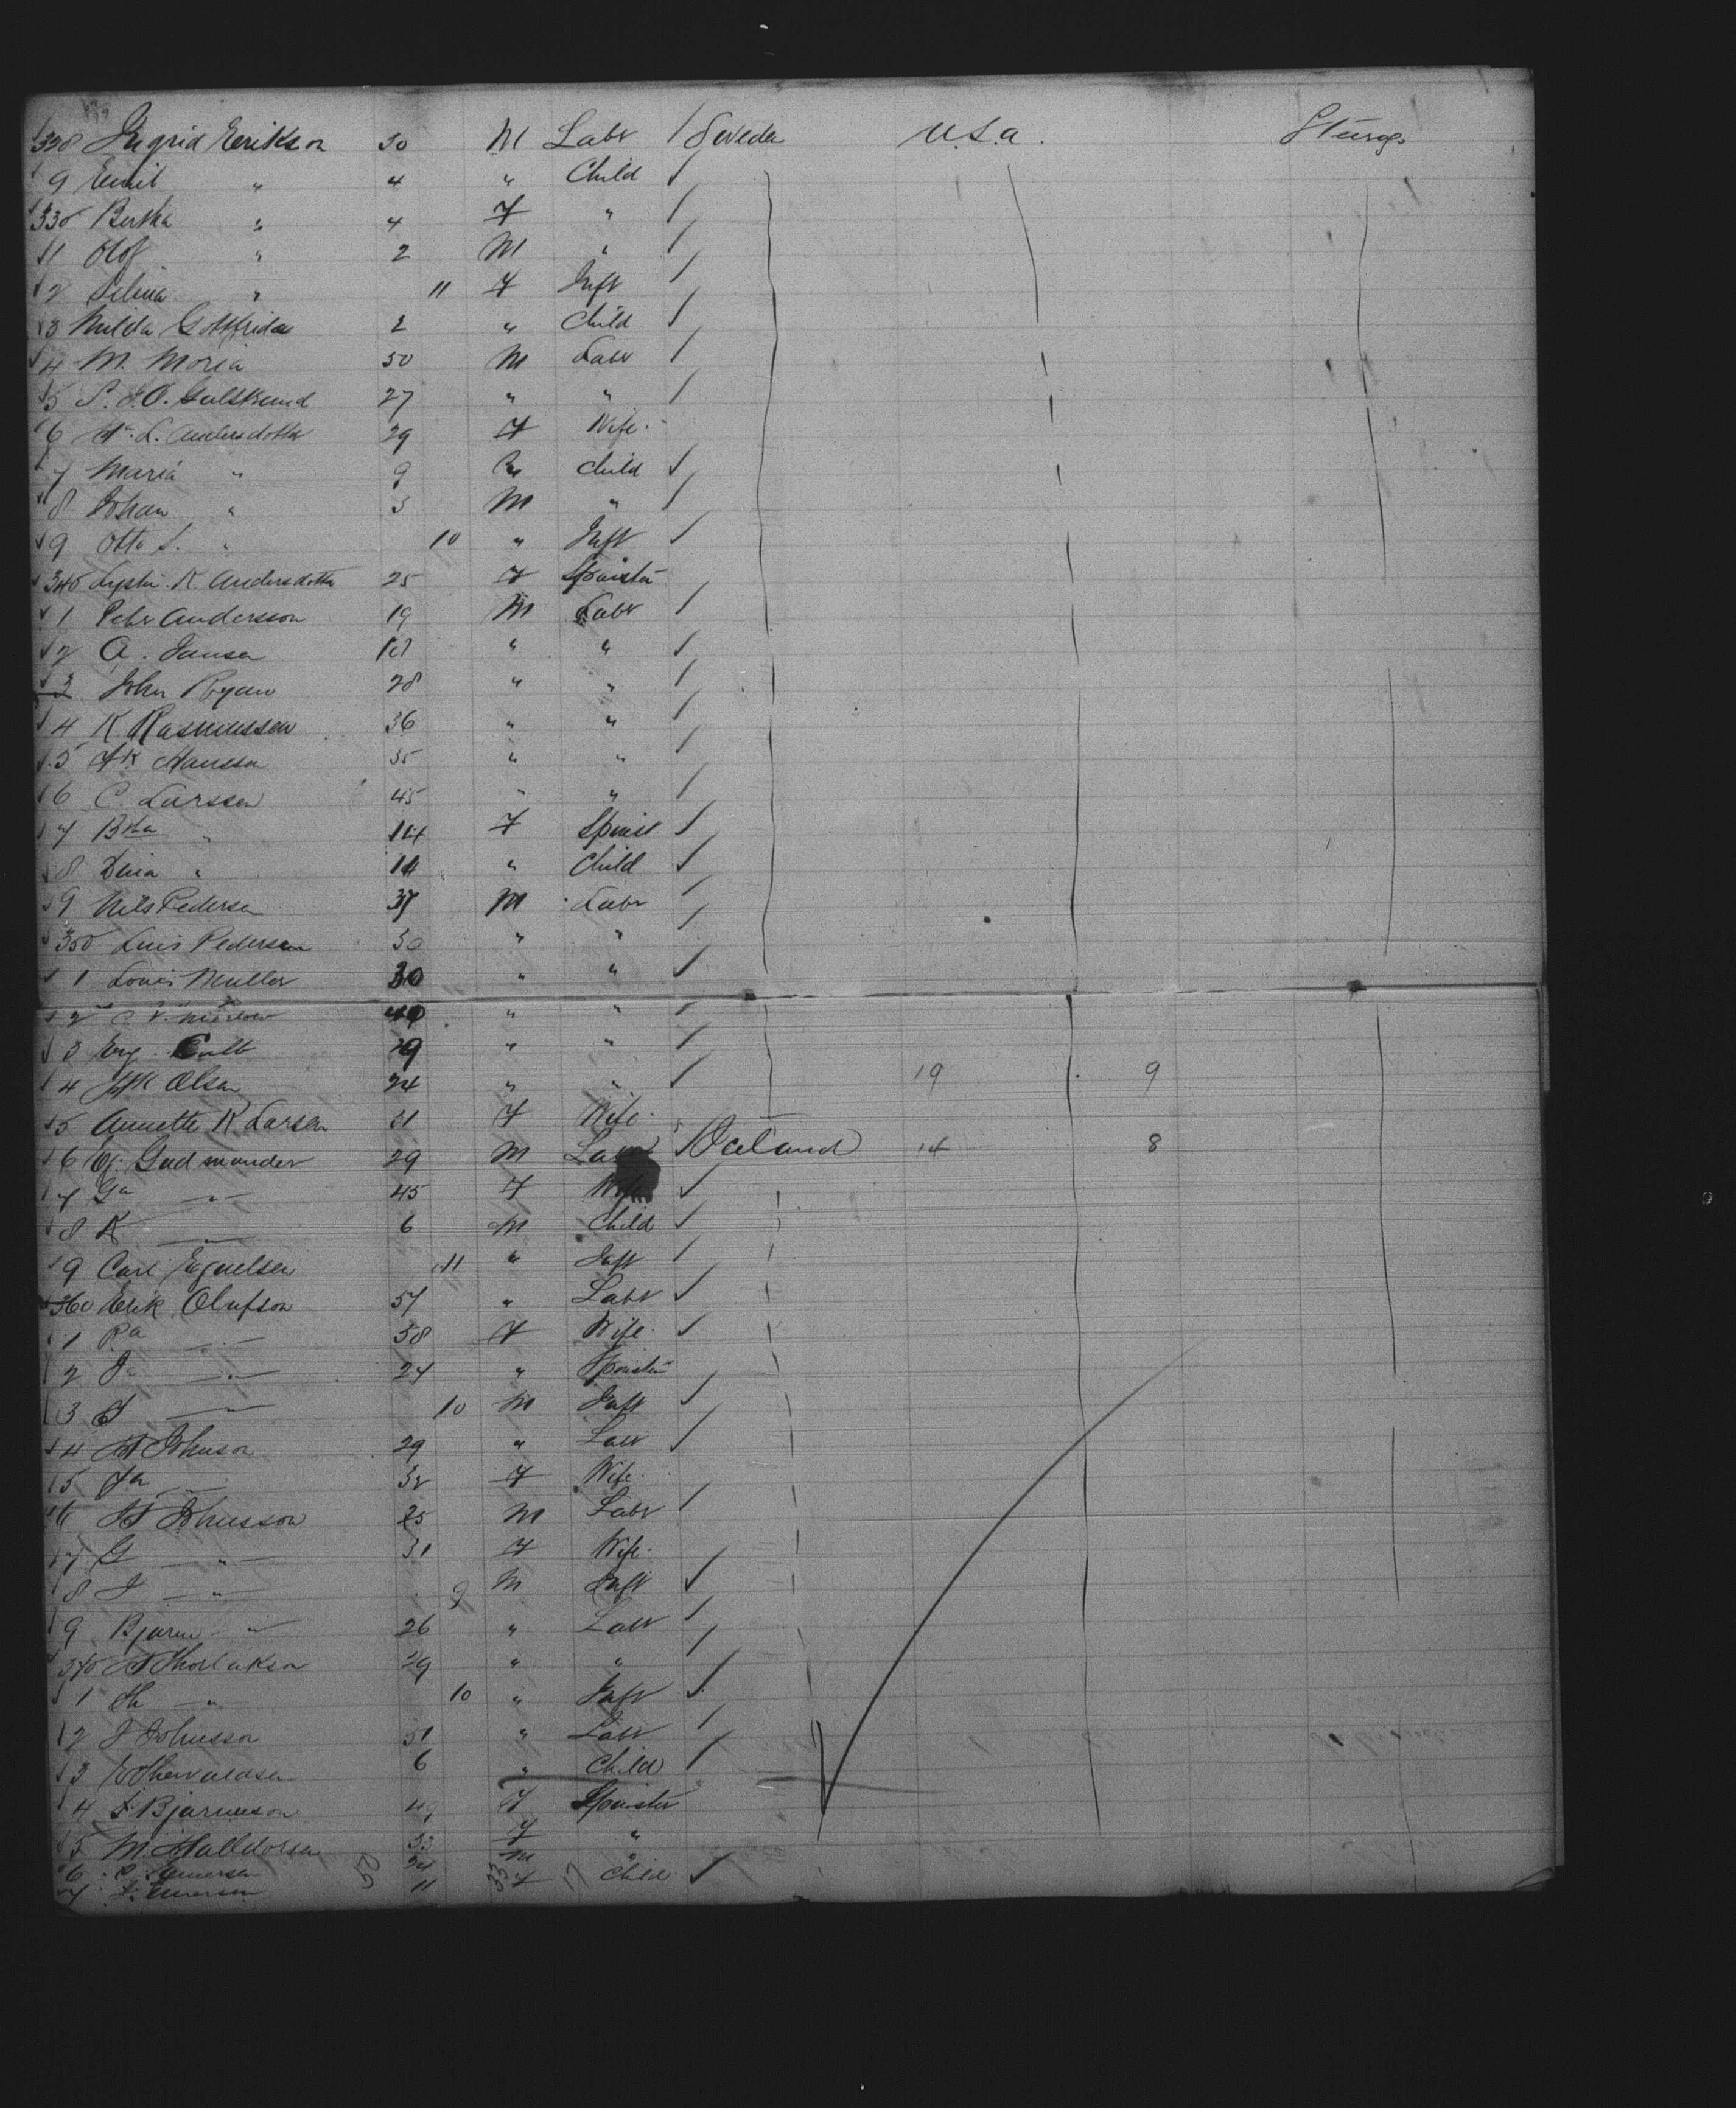 328 Ingrid Erikson 30 M Labr Sweden U.S.a. Steerage
9 Emil " 4 " Child
330 Bertha " 4 F "
1 Olof " 2 M "
2 Selma " 11 F Inft
3 Hulda Gottfrida 2 " Child
4 M. Moria 50 M Labr
5 S. J. O. Gulstrund 27 " "
6 A. L. Andersdotter 29 F Wife
7 Maria " 9 Child
8 Johan " 3 M "
9 Otto S. " 10 " Inft
340 K Andersdotter 25 F Spinster
1 Pehr Andersson 19 M Labr
2 A. Jansen " "
3 John Ryan 28 " "
4 K Rasmussen 36 " "
5 Hk Hansson 35 " "
6 C. Larssen 45 " "
7 Btha " 14 F Spinst
8 Dina " 11 " Child
9 Nils Pedersen 37 M Labr
350 Luis Pedersen 30 " "
1 Louis Muller 30 " "
2 40 " "
3 29 " "
4 Olsen 24 " " 19 9
5 Annette K Larsen 31 F Wife
6 Ej. Gudmunder 29 M Labr Iceland 14 8
7 Ga — " — 45 F Wife
8 K — " — 6 M Child
9 Carl 11 " Inft
360 Erik Olufson 57 " Labr
1 Ra — " — 58 F Wife
2 Ja — " — 24 " Spinster
3 — " — 10 M Inft
4 Johnson 29 " Labr
5 — " — 32 F Wife
6 Johnsson 25 M Labr
7 G — " — 31 F Wife
8 J — " — 9 M Inft
9 Bjarne — " — 26 " Labr
370 Thorlakson 29 " "
1 Th — " — 10 " Inft
2 J Johnsson 51 " Labr
3 Thorvaldsen 6 " Child
4 Bjarneson 49 F Spinster
5 M. Halldorsen 33 F "
6 24 M "
7 11 F Child
50 33 17